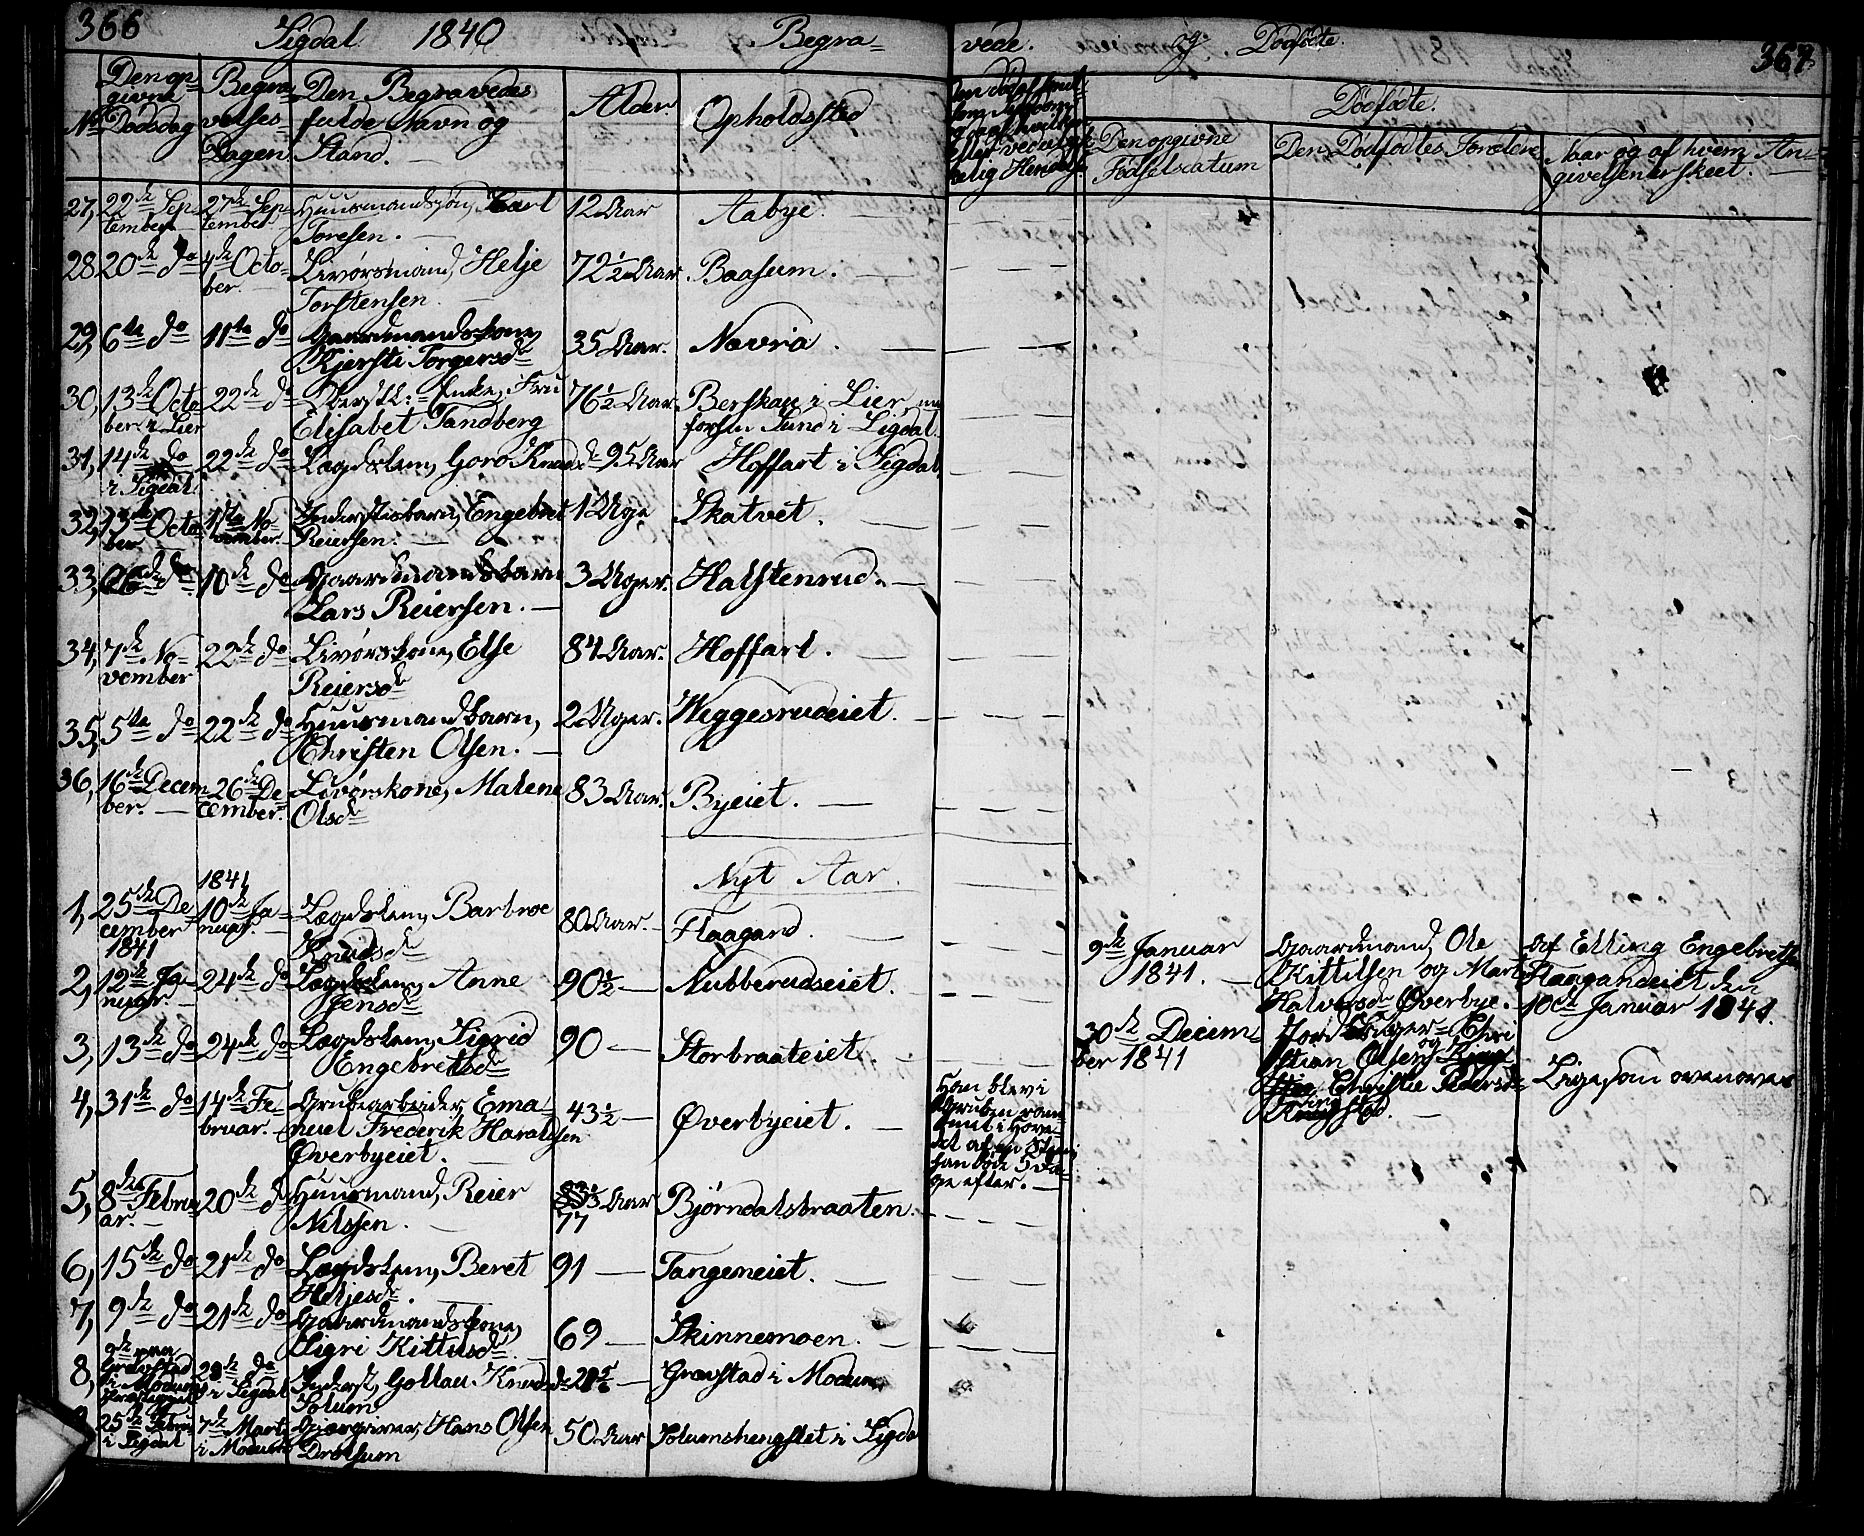 366 Sigdal 1840 Begra=
No
Den op=
givne
Dødsdag
Begra=
velses=
Dagen
Den Begravedes
fulde Navn og
Stand.
Alder.
Opholdssted
27, 22de Sep=
tember
27de Sep=
tember
Huusmandssøn,
Toresen.
12 Aar
Aabye.
28, 20de do
4de Octo=
ber.
Livørsmand, Helje
Torstensen.
72 1/2 Aar
Baasum.
29, 6te do
11te do
Gaardmandskone,
Kjersti Torgersd.
35 Aar.
Nævria.
30, 13de Octo
ber i Lier
22de do
Enke, Fru
Elisabet Tandberg
76 1/2 Aar
Berskau i Lier
Lund i Sigdal.
31, 14de do
i Sigdal
22de do
Lægdslem, Goro
95 Aar
Hoffart i Sigdal
32, Octo
ber.
1ste No=
vember.
Engebret
Reiersen.
1 Uge
Skatvet.
33, 26de do
10de do
Gaardmandsbarn
Lars Reiersen.
3 Uger.
Halstenrud.
34, 7de No=
vember
22de do
Livørskone, Else
Reiersd.
84 Aar.
Hoffart.
35, 5te do
22de do
Huusmandsbarn,
Christen Olsen.
2 Uger.
Weggesrudeiet.
36, 16de Decem
ber.
26de De=
cember.
Livørskone, Malene
Olsd.
83 Aar.
Byeiet.
Nyt Aar.
1, 25de De=
cember
1841
10de Ja=
nuar.
Lægdslem, Barbroe
Knudsd.
80 Aar.
Flaagand.
1841
2, 12te Ja=
nuar
24de do
Lægdslem, Anne
Jensd.
90 1/2
Nubberudseiet.
3, 13de do
24de do
Lægdslem, Sigrid
Engebretsd.
90
Storbraateiet.
4, 31de do
14de Fe=
bruar.
Grubearbeider, Ema=
nuel Frederik Haraldsen
Øverbyeiet.
43 1/2
Øverbyeiet.
5, 8de Febru
ar.
20de do
Huusmand, Reier
Nilssen.
Aar
77
Bjørndalsbraaten.
6, 15de do
21de do
Lægdslem, Beret
Heljesd.
91
Tangeneiet.
7, 9de do
21de do
Gaardmandskone,
Sigri Kittilsd.
69
Skinnemoen.
8, 9de paa
Gravstad
i Modum
28de do
i Sigdal
Inderst, Gollau
Solum
Gravstad i Modum
25de Febru
i Sigdal
7de Mart
i Modum
Hans Olsen
Drolsum
50 Aar
i Sigdal
vede. og Dødfødte. 367
Dødfødte.
Den opgivne
Fødselsdatum
Den Dødfødtes Forældre
Naar og af hvem An=
givelsen er skeet.
9de Januar
1841.
Gaardmand, Ole
Kittilsen og Mari
Halvorsd. Øverbye.
Af Elling Engebretsen
Flaagandeiet den
10de Januar 1841.
30de Decem=
ber 1841
Chri
stian Olsen og
Christie Pedersd.
Ligesom ovenover
Han blev i
Gruben ram=
met i Hove=
det af en Steen
han døde 5 Da=
ge efter.